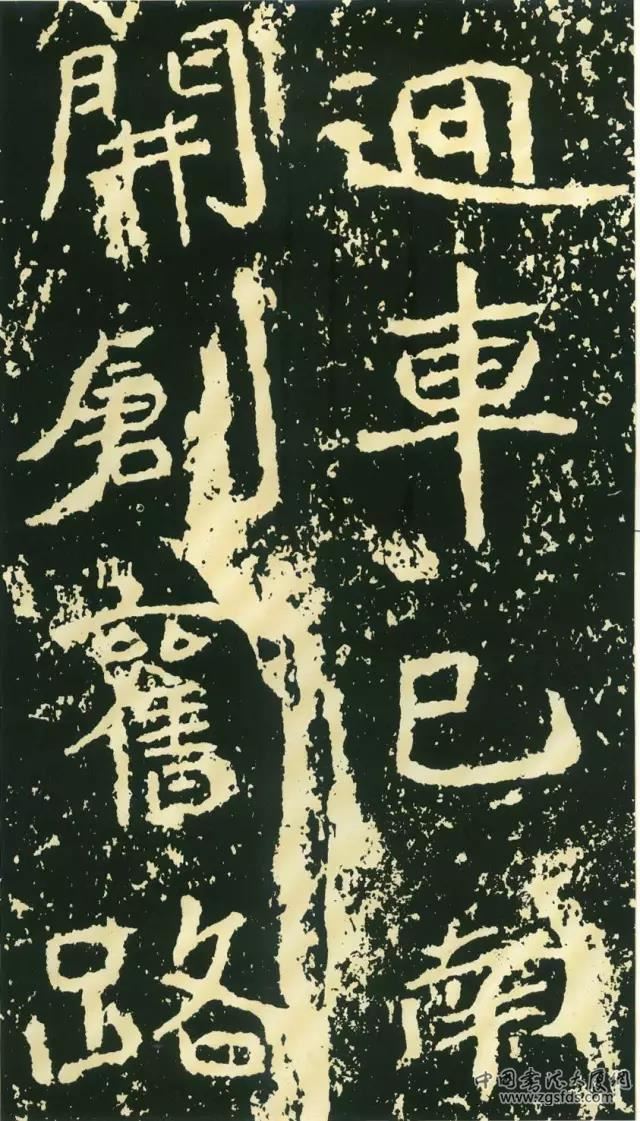 迴車已南
開創舊路
中国书法大厦网
www.zgsfds.com